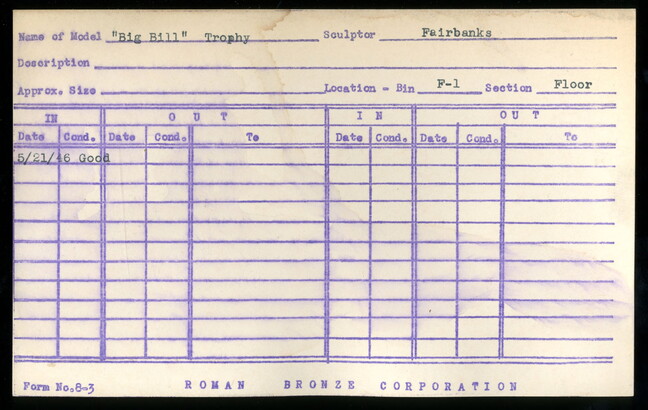 Name of Model "Big Bill" Trophy Sculptor Fairbanks
Description
Approx. Size Location - Bin F-1 Section Floor
IN OUT IN OUT
Date Cond. Date Cond. To Date Cond. Date Cond. To
5/21/46 Good
Form No. 8-3 ROMAN BRONZE CORPORATION